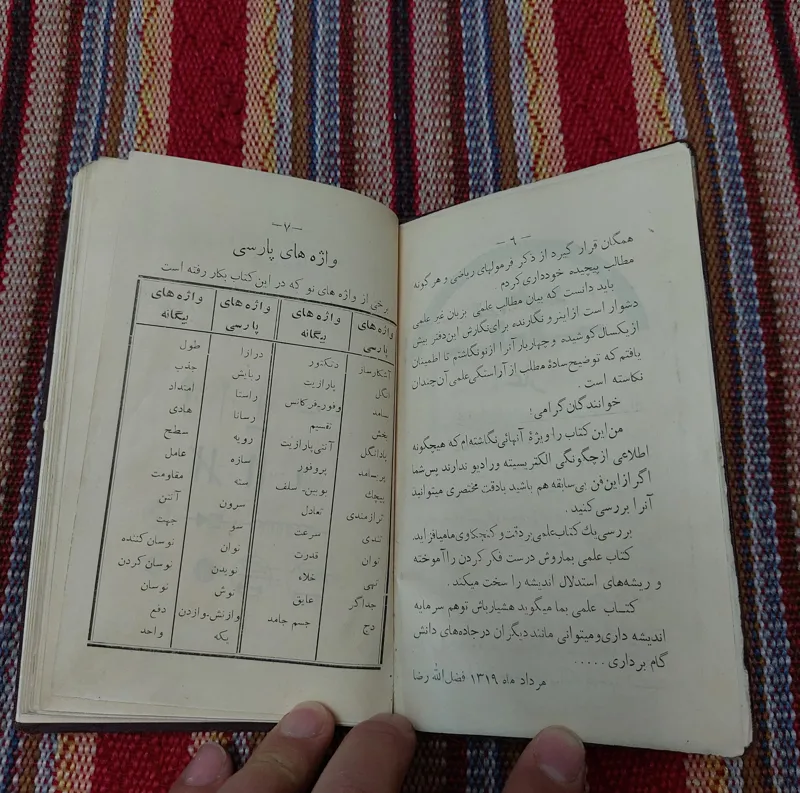 — ٦ —
همگان قرار گیرد از ذکر فرمولهای ریاضی و هر گونه
مطالب پیچیده خودداری کردم .
باید دانست که بیان مطالب علمی بزبان غیر علمی
دشوار است از اینرو نگارنده برای نگارش این دفتر بیش
از یکسال کوشیده و چهار بار آنرا از نو نگاشتم تا اطمینان
یافتم که توضیح سادهٔ مطلب از آراستگی علمی آن چندان
نکاسته است .
خوانندگان گرامی !
من این کتاب را ویژهٔ آنهائی نگاشته‌ام که هیچگونه
اطلاعی از چگونگی الکتریسیته و رادیو ندارند پس شما
اگر از این فن بی‌سابقه هم باشید با دقت مختصری میتوانید
آنرا بررسی کنید .
بررسی یك کتاب علمی بر دقت و کنجکاوی ما میافزاید.
کتاب علمی بما روش درست فکر کردن را آموخته
و ریشه‌های استدلال اندیشه را سخت میکند .
کتاب علمی بما میگوید هشیار باش تو هم سرمایه
اندیشه داری و میتوانی مانند دیگران در جاده‌های دانش
گام برداری .....
مرداد ماه ۱۳۱۹ فضل‌الله رضا
— ۷ —
واژه های پارسی
برخی از واژه های نو که در این کتاب بکار رفته است
واژه های پارسی واژه های بیگانه واژه های پارسی واژه های بیگانه
آشکارساز دتکتور درازا طول
انگل پارازیت ربایش جذب
بسامد وفور-فرکانس راستا امتداد
بخش تقسیم رسانا هادی
پادانگل آنتی‌پارازیت رویه سطح
پربسامد پروفور سازه عامل
پیچك بوبین-سلف سته مقاومت
ترازمندی تعادل سرون آنتن
تندی سرعت سو جهت
توان قدرت نوان نوسان‌کننده
تهی خلاء نویدن نوسان کردن
جداگر عایق نوش نوسان
دج جسم جامد وازنش-وازدن دفع
یکه واحد